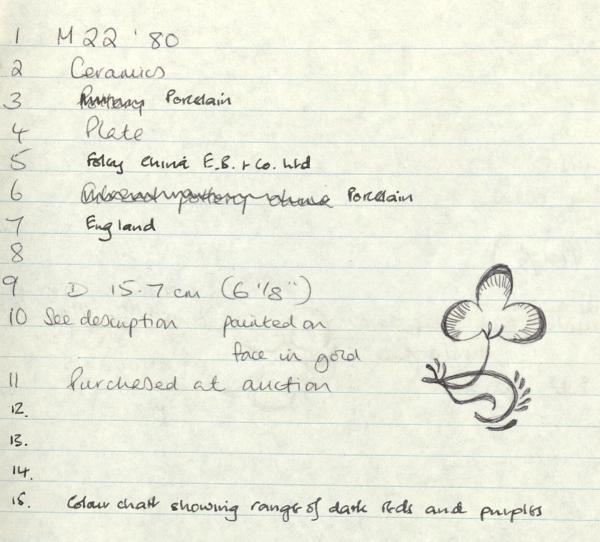 1 M 22 '80
2 Ceramics
3 Porcelain
4 Plate
5 Foley China E.B. & Co. Ltd
6 Porcelain
7 England
8
9 D 15.7 cm (6 1/8")
10 See description painted on
face in gold
11 Purchased at auction
12.
13.
14.
15. Colour chart showing range of dark reds and purples